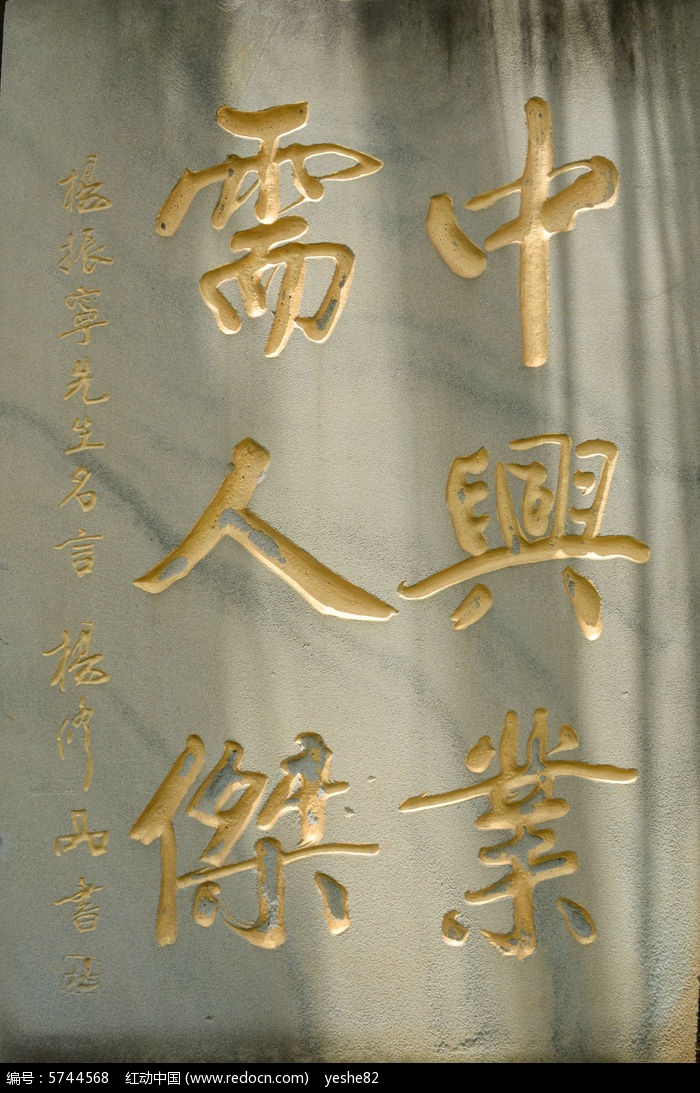 中興業
需人傑
楊振寧先生名言 楊修品書
编号：5744568 红动中国 (www.redocn.com) yeshe82